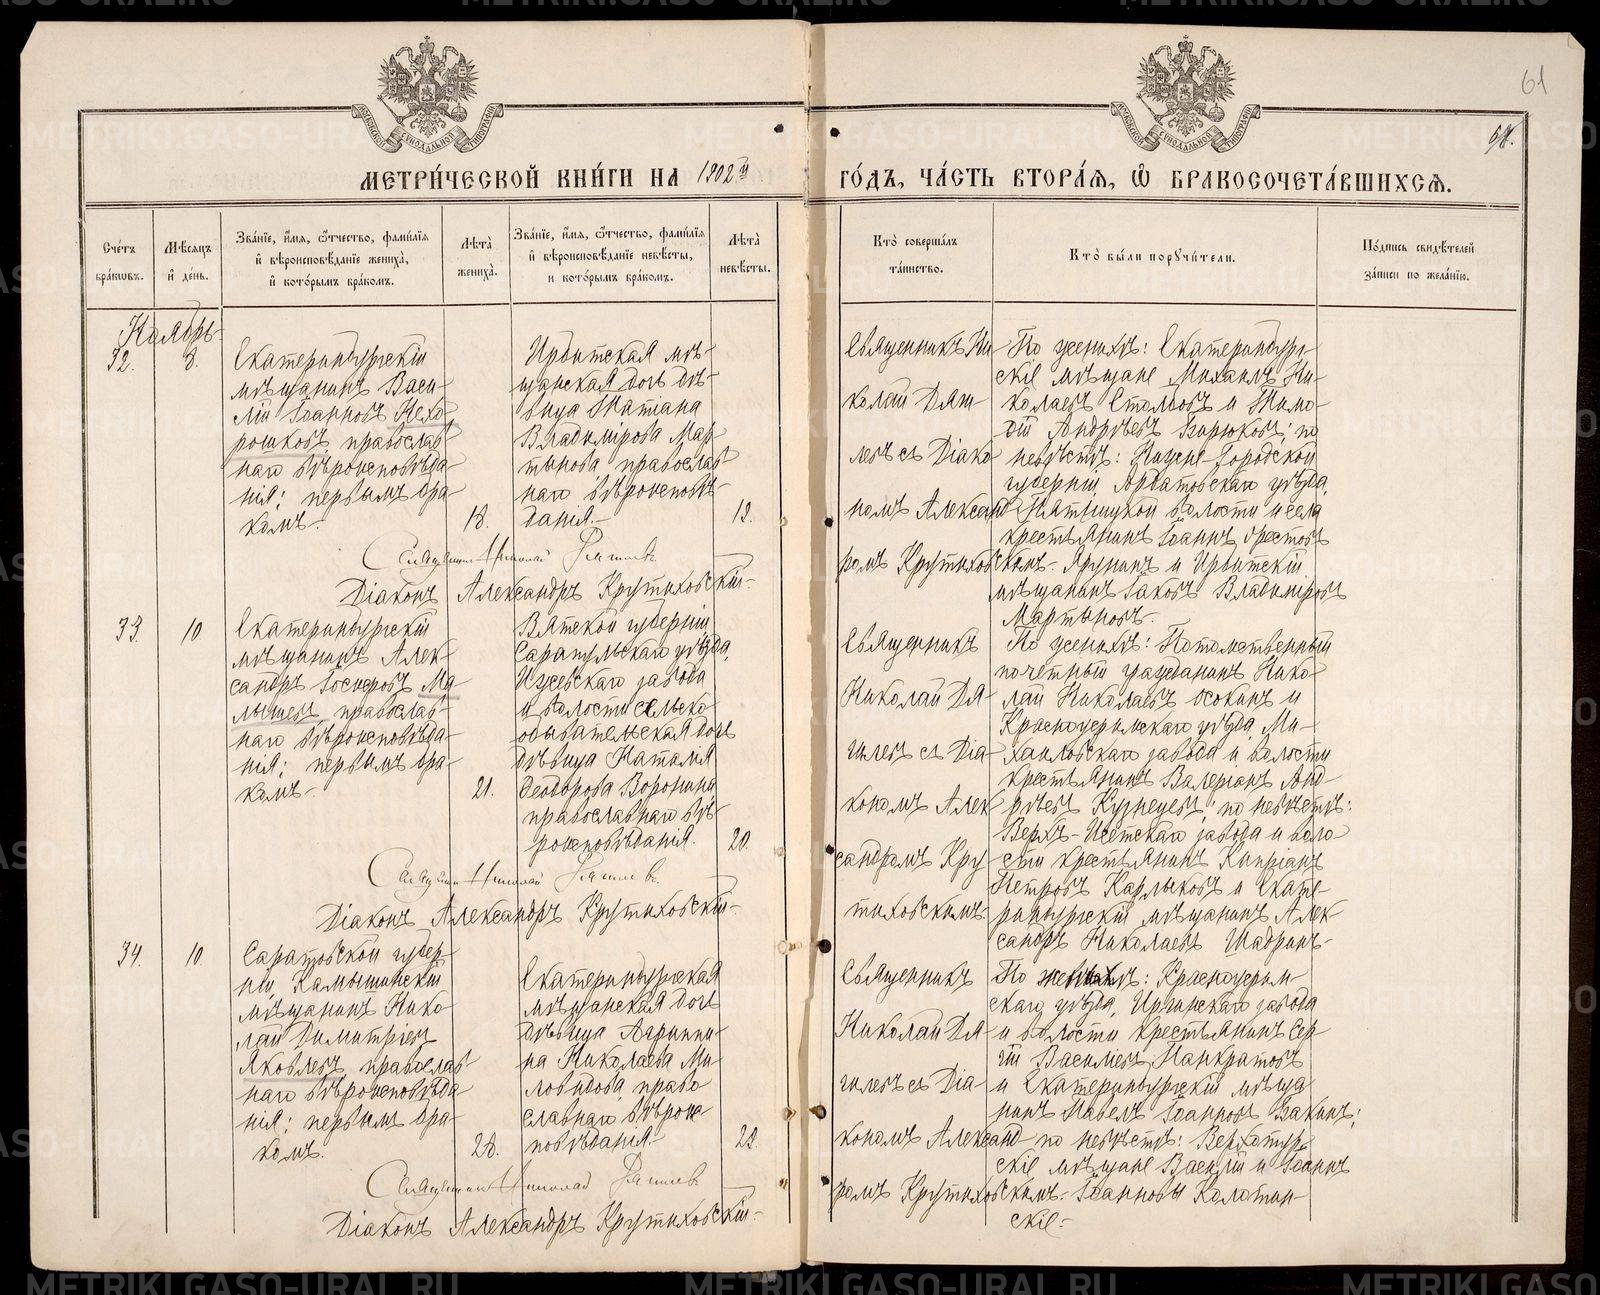 61
61.
МЕТРИ́ЧЕСКОЙ КНИ́ГИ НА 1902й ГО́ДЪ, ЧА́СТЬ ВТОРА́Я, Ѡ БРАКОСОЧЕТА́ВШИХСѦ.
Сче́тъ бра́ковъ.
Мѣ́сяцъ и҆ де́нь.
Зва́нїе, и҆́мя, ѻ҆́тчество, фами́лїя и҆ вѣроисповѣ́данїе жениха̀, и҆ кото́рымъ бра́комъ.
Лѣ́та жениха̀.
Зва́нїе, и҆́мя, ѻ҆́тчество, фами́лїя и҆ вѣроисповѣ́данїе невѣ́сты, и кото́рымъ бра́комъ.
Лѣ́та невѣ́сты.
Кто̀ соверша́лъ та́инство.
Кто̀ бы́ли порꙋчи́тели.
По́дпись свидѣ́телей за́писи по жела́нїю.
Ноябрь
32.
8.
Екатеринбургскій
мѣщанинъ Васи-
лій Іоанновъ Нехо-
рошковъ православ-
наго вѣроисповѣда-
нія; первымъ бра-
комъ.
18.
Ирбитская мѣ-
щанская дочь дѣ-
вица Татіана
Владимірова Мар-
тынова православ-
наго вѣроисповѣ-
данія.
19.
Священникъ Ни-
колай Дяги-
левъ съ Діако-
номъ Александ-
ромъ Крутиховскимъ.
По женихѣ: Екатеринбург-
скіе мѣщане Михаилъ Ни-
колаевъ Столбовъ и Тимо-
ѳей Андреевъ Бирюковъ; по
невѣстѣ: Нижне-Городской
губерніи, Ардатовскаго уѣзда,
волости и села
крестьянинъ Іоаннъ Орестовъ
Ярунинъ и Ирбитскій
мѣщанинъ Іаковъ Владиміровъ
Мартыновъ.
Священникъ Николай Дягилевъ
Діаконъ Александръ Крутиховскій.
33.
10
Екатеринбургскій
мѣщанинъ Алек-
сандръ Іосифовъ Ма-
лышевъ православ-
наго вѣроисповѣда-
нія; первымъ бра-
комъ.
21.
Вятской губерніи
Сарапульскаго уѣзда,
завода
и волости сельско-
обывательская дочь
дѣвица Наталія
Ѳеодорова Воронина
православнаго вѣ-
роисповѣданія.
20.
Священникъ
Николай Дя-
гилевъ съ Діа-
кономъ Алек-
сандромъ Кру-
тиховскимъ.
По женихѣ: Потомственный
почетный гражданинъ Нико-
лай Николаевъ Осокинъ и
Красноуфимскаго уѣзда, Ми-
хайловскаго завода и волости
крестьянинъ Валеріанъ Анд-
реевъ Кузнецовъ; по невѣстѣ:
Верхъ-Исетскаго завода и воло-
сти крестьянинъ Кипріанъ
Петровъ Карлыковъ и Екате-
ринбургскій мѣщанинъ Алек-
сандръ Николаевъ Шадринъ.
Священникъ Николай Дягилевъ.
Діаконъ Александръ Крутиховскій.
34.
10
Саратовской губер-
ніи, Камышинскій
мѣщанинъ Нико-
лай Димитріевъ
Яковлевъ православ-
наго вѣроисповѣда-
нія; первымъ бра-
комъ.
28.
Екатеринбургская
мѣщанская дочь
дѣвица Агриппи-
на Николаева Ми-
ловидова, право-
славнаго вѣроис-
повѣданія.
22.
Священникъ
Николай Дя-
гилевъ съ Діа-
кономъ Александ-
ромъ Крутиховскимъ.
По женихѣ: Красноуфим-
скаго уѣзда, Иргинскаго завода
и волости крестьянинъ Сер-
гій Васильевъ Панкратовъ
и Екатеринбургскій мѣща-
нинъ Павелъ Іоанновъ Вакинъ;
по невѣстѣ: Верхотур-
скіе мѣщане Василій и Іоаннъ
Іоанновы Колотин-
скіе.
Священникъ Николай Дягилевъ
Діаконъ Александръ Крутиховскій.
METRIKI.GASO-URAL.RU